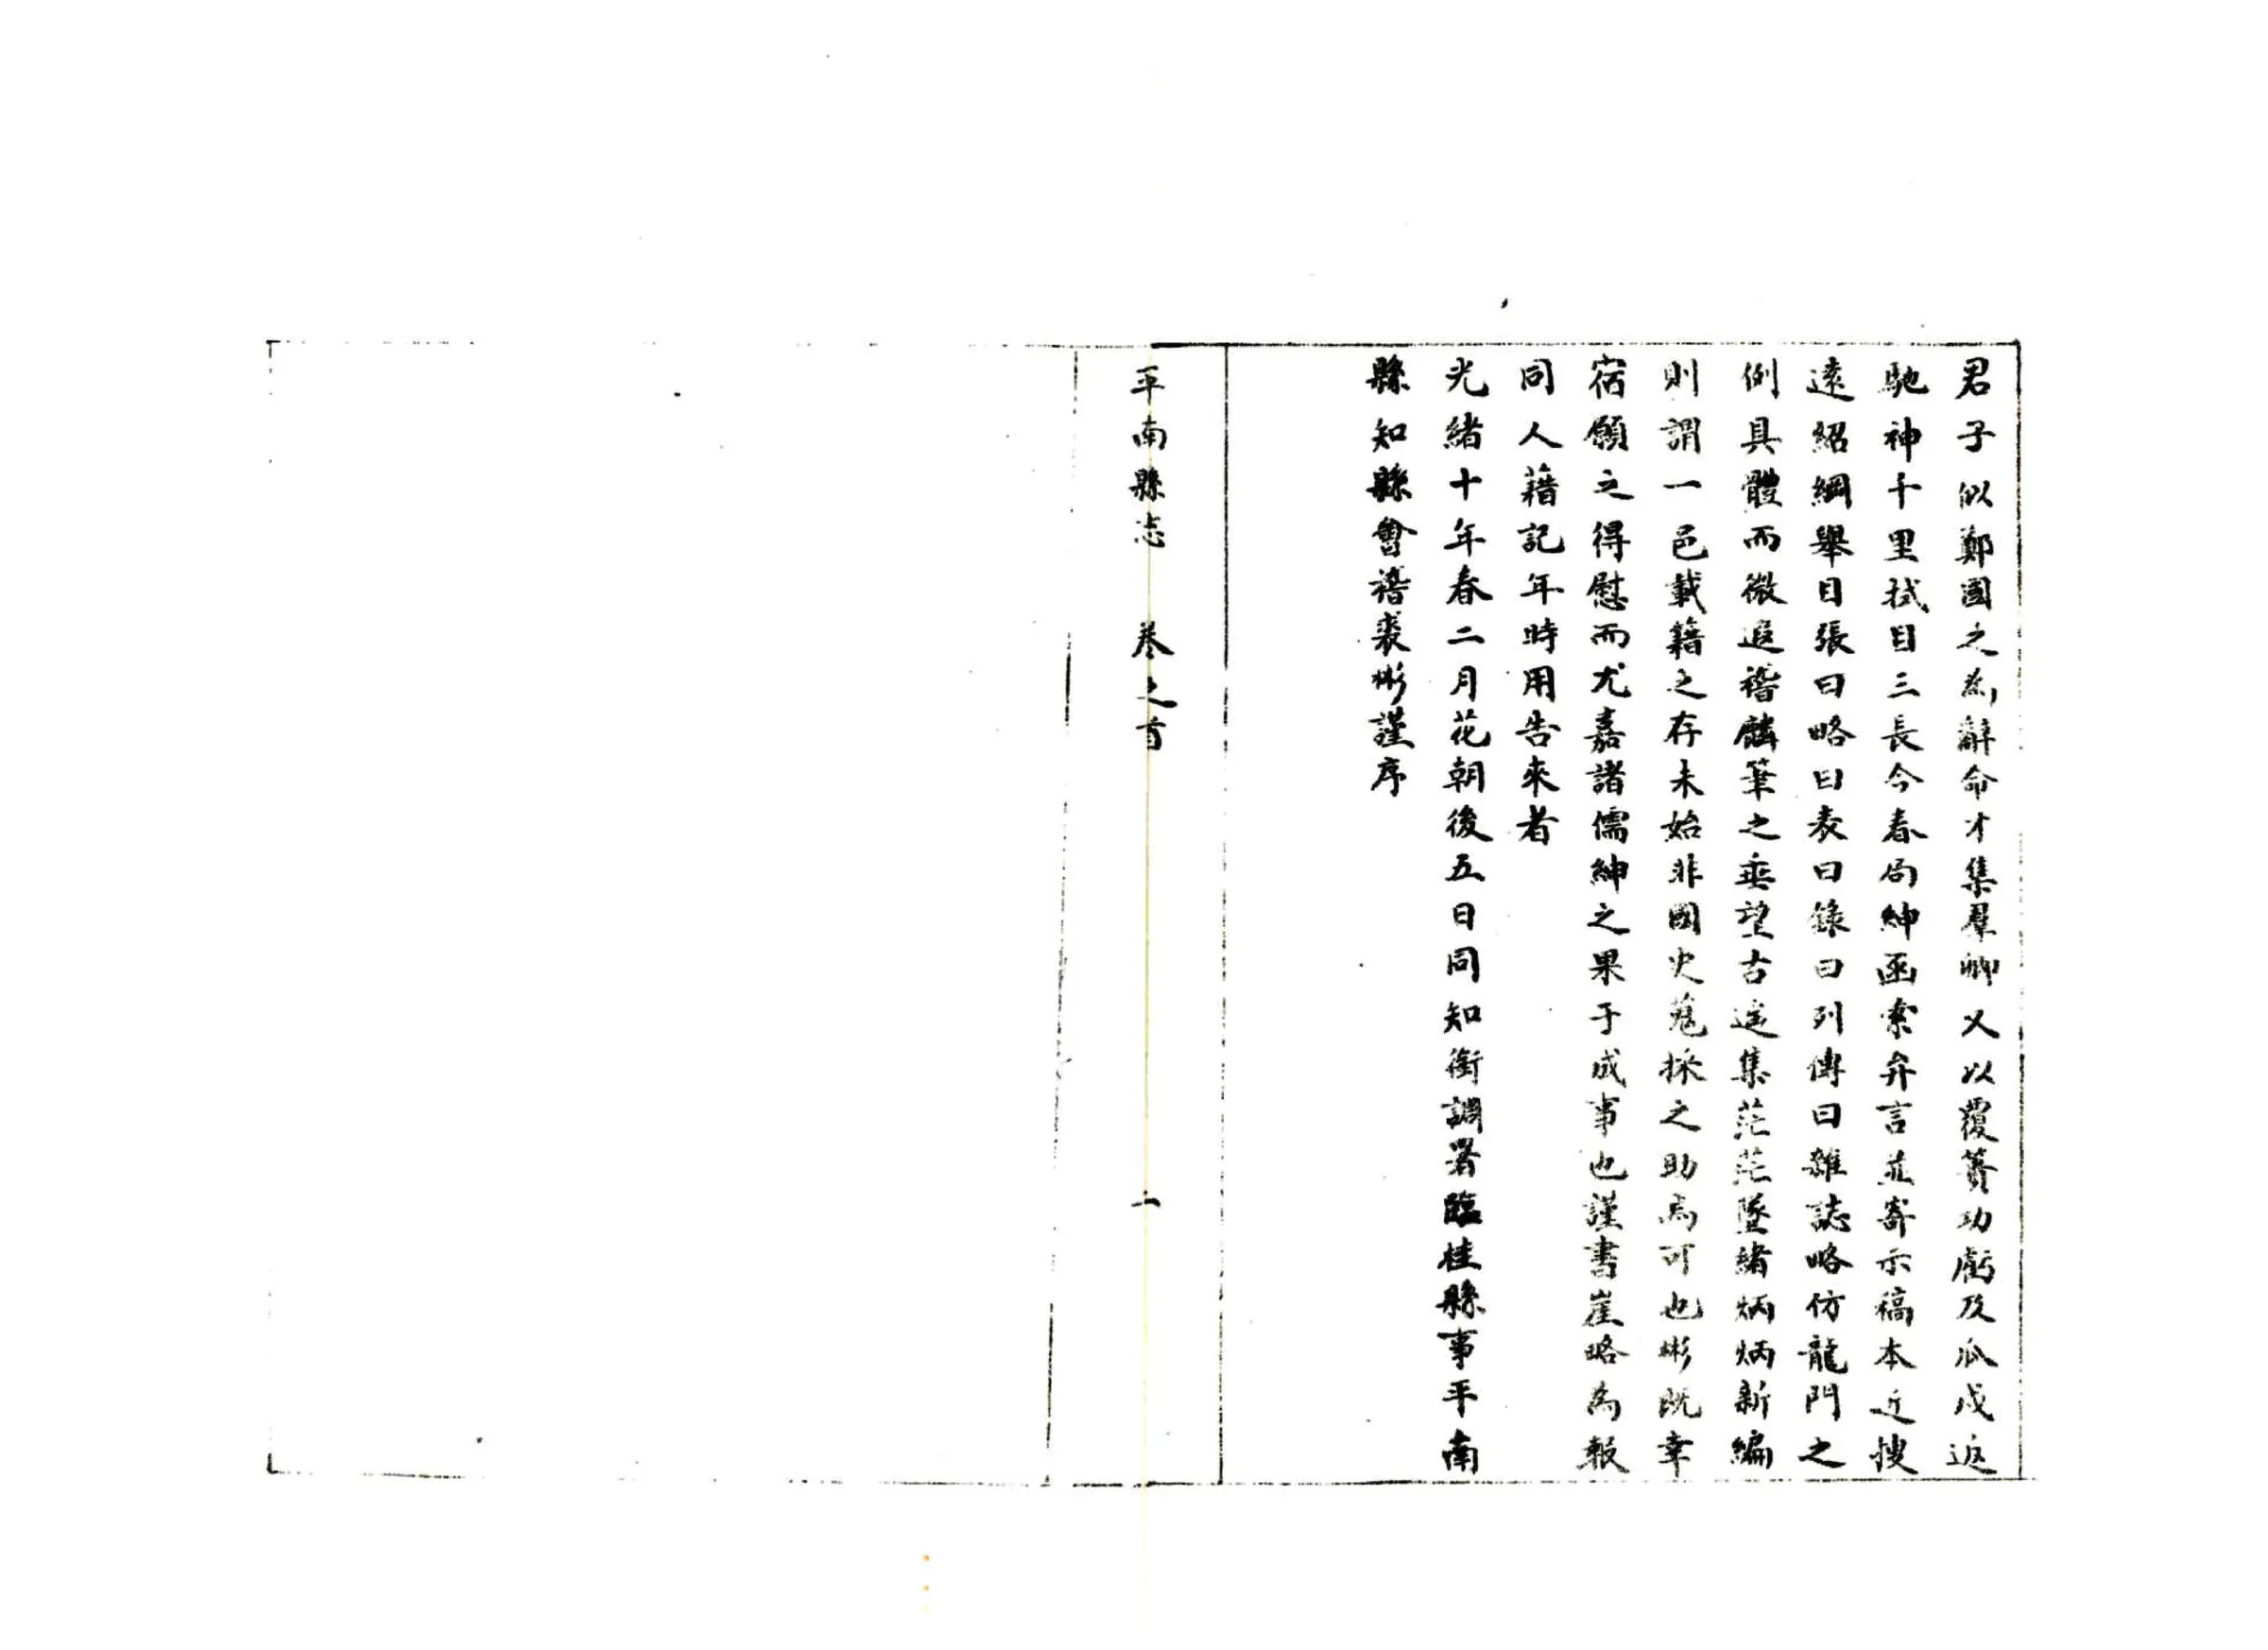 君子似鄭國之為辭命才集羣卿又以覆簣功虧及瓜戍返
馳神千里拭目三長今春局紳函索弁言並寄示稿本近搜
遠紹綱舉目張曰略曰表曰錄曰列傳曰雜誌略仿龍門之
例具體而微遐稽麟筆之垂望古遙集茫茫墜緒炳炳新編
則謂一邑載籍之存未始非國史蒐採之助焉可也彬既幸
宿願之得慰而尤嘉諸儒紳之果于成事也謹書崖略為報
同人藉記年時用告來者
光緒十年春二月花朝後五日同知銜調署臨桂縣事平南
縣知縣會稽裘彬謹序
平南縣志 卷之首 二